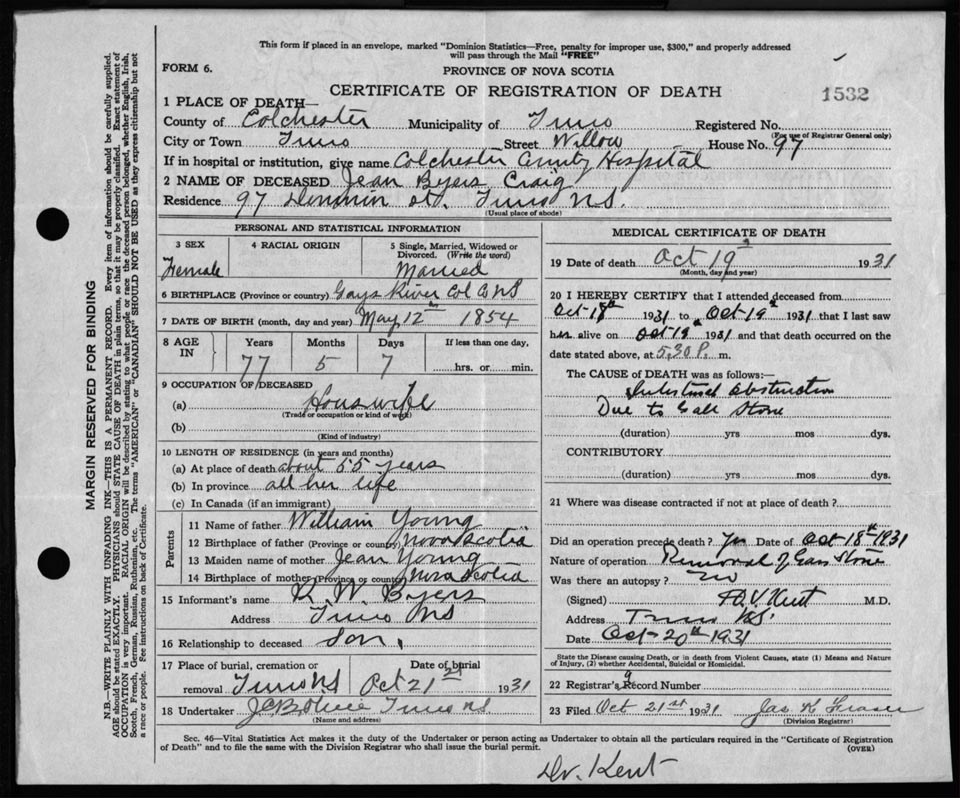 This form if placed in an envelope, marked "Dominion Statistics—Free, penalty for improper use, $300," and properly addressed
will pass through the Mail "FREE"
FORM 6.
PROVINCE OF NOVA SCOTIA
CERTIFICATE OF REGISTRATION OF DEATH
1532
1 PLACE OF DEATH—
County of Colchester Municipality of Truro Registered No.
(For use of Registrar General only)
City or Town Truro Street Willow House No. 97
If in hospital or institution, give name Colchester County Hospital
2 NAME OF DECEASED Jean Byers Craig
Residence 97 St. Truro N.S.
(Usual place of abode)
PERSONAL AND STATISTICAL INFORMATION
3 SEX
Female
4 RACIAL ORIGIN
5 Single, Married, Widowed or
Divorced. (Write the word)
Married
6 BIRTHPLACE (Province or country) Gays River Col Co NS
7 DATE OF BIRTH (month, day and year) May 12th 1854
8 AGE IN
Years Months Days If less than one day,
77 5 7 hrs. or min.
9 OCCUPATION OF DECEASED
(a) Houswife
(Trade or occupation or kind of work)
(b)
(Kind of industry)
10 LENGTH OF RESIDENCE (in years and months)
(a) At place of death about 55 years
(b) In province all her life
(c) In Canada (if an immigrant)
Parents
11 Name of father William Young
12 Birthplace of father (Province or country) Nova Scotia
13 Maiden name of mother Jean Young
14 Birthplace of mother (Province or country) Nova Scotia
15 Informant's name R. W. Byers
Address Truro NS
16 Relationship to deceased Son.
17 Place of burial, cremation or Date of burial
removal Truro NS Oct 21st 1931
18 Undertaker Truro NS
(Name and address)
MEDICAL CERTIFICATE OF DEATH
19 Date of death Oct 19th 1931
(Month, day and year)
20 I HEREBY CERTIFY that I attended deceased from
Oct 18th 1931 to Oct 19th 1931 that I last saw
her alive on Oct 19th 1931 and that death occurred on
the date stated above, at 5.30 P. m.
The CAUSE OF DEATH was as follows:—
Intestinal Obstruction
Due to Gall Stone
(duration) yrs mos dys.
CONTRIBUTORY
(duration) yrs mos dys.
21 Where was disease contracted if not at place of death?
Did an operation precede death? Yes Date of Oct 18th 1931
Nature of operation Removal of Gall Stone
Was there an autopsy? no
(Signed) H.V. Kent M.D.
Address Truro N.S.
Date Oct 20th 1931
State the Disease causing Death, or in death from Violent Causes, state (1) Means and Nature
of Injury, (2) whether Accidental, Suicidal or Homicidal.
22 Registrar's Record Number
23 Filed Oct 21st 1931 Jas. K. Fraser
(Division Registrar)
Sec. 46—Vital Statistics Act makes it the duty of the Undertaker or person acting as Undertaker to obtain all the particulars required in the "Certificate of Registration
of Death" and to file the same with the Division Registrar who shall issue the burial permit.
(OVER)
Dr. Kent
MARGIN RESERVED FOR BINDING
N.B.—WRITE PLAINLY WITH UNFADING INK—THIS IS A PERMANENT RECORD. Every item of information should be carefully supplied.
AGE should be stated EXACTLY. PHYSICIANS should STATE CAUSE OF DEATH in plain terms, so that it may be properly classified. Exact statement of
OCCUPATION is very important. RACIAL ORIGIN will be described by stating to what people or race the deceased person belonged, whether English, Irish,
Scotch, French, German, Russian, Ruthenian, etc. The terms "AMERICAN" or "CANADIAN" SHOULD NOT BE USED as they express citizenship but not
a race or people. Fee instructions on back of Certificate.